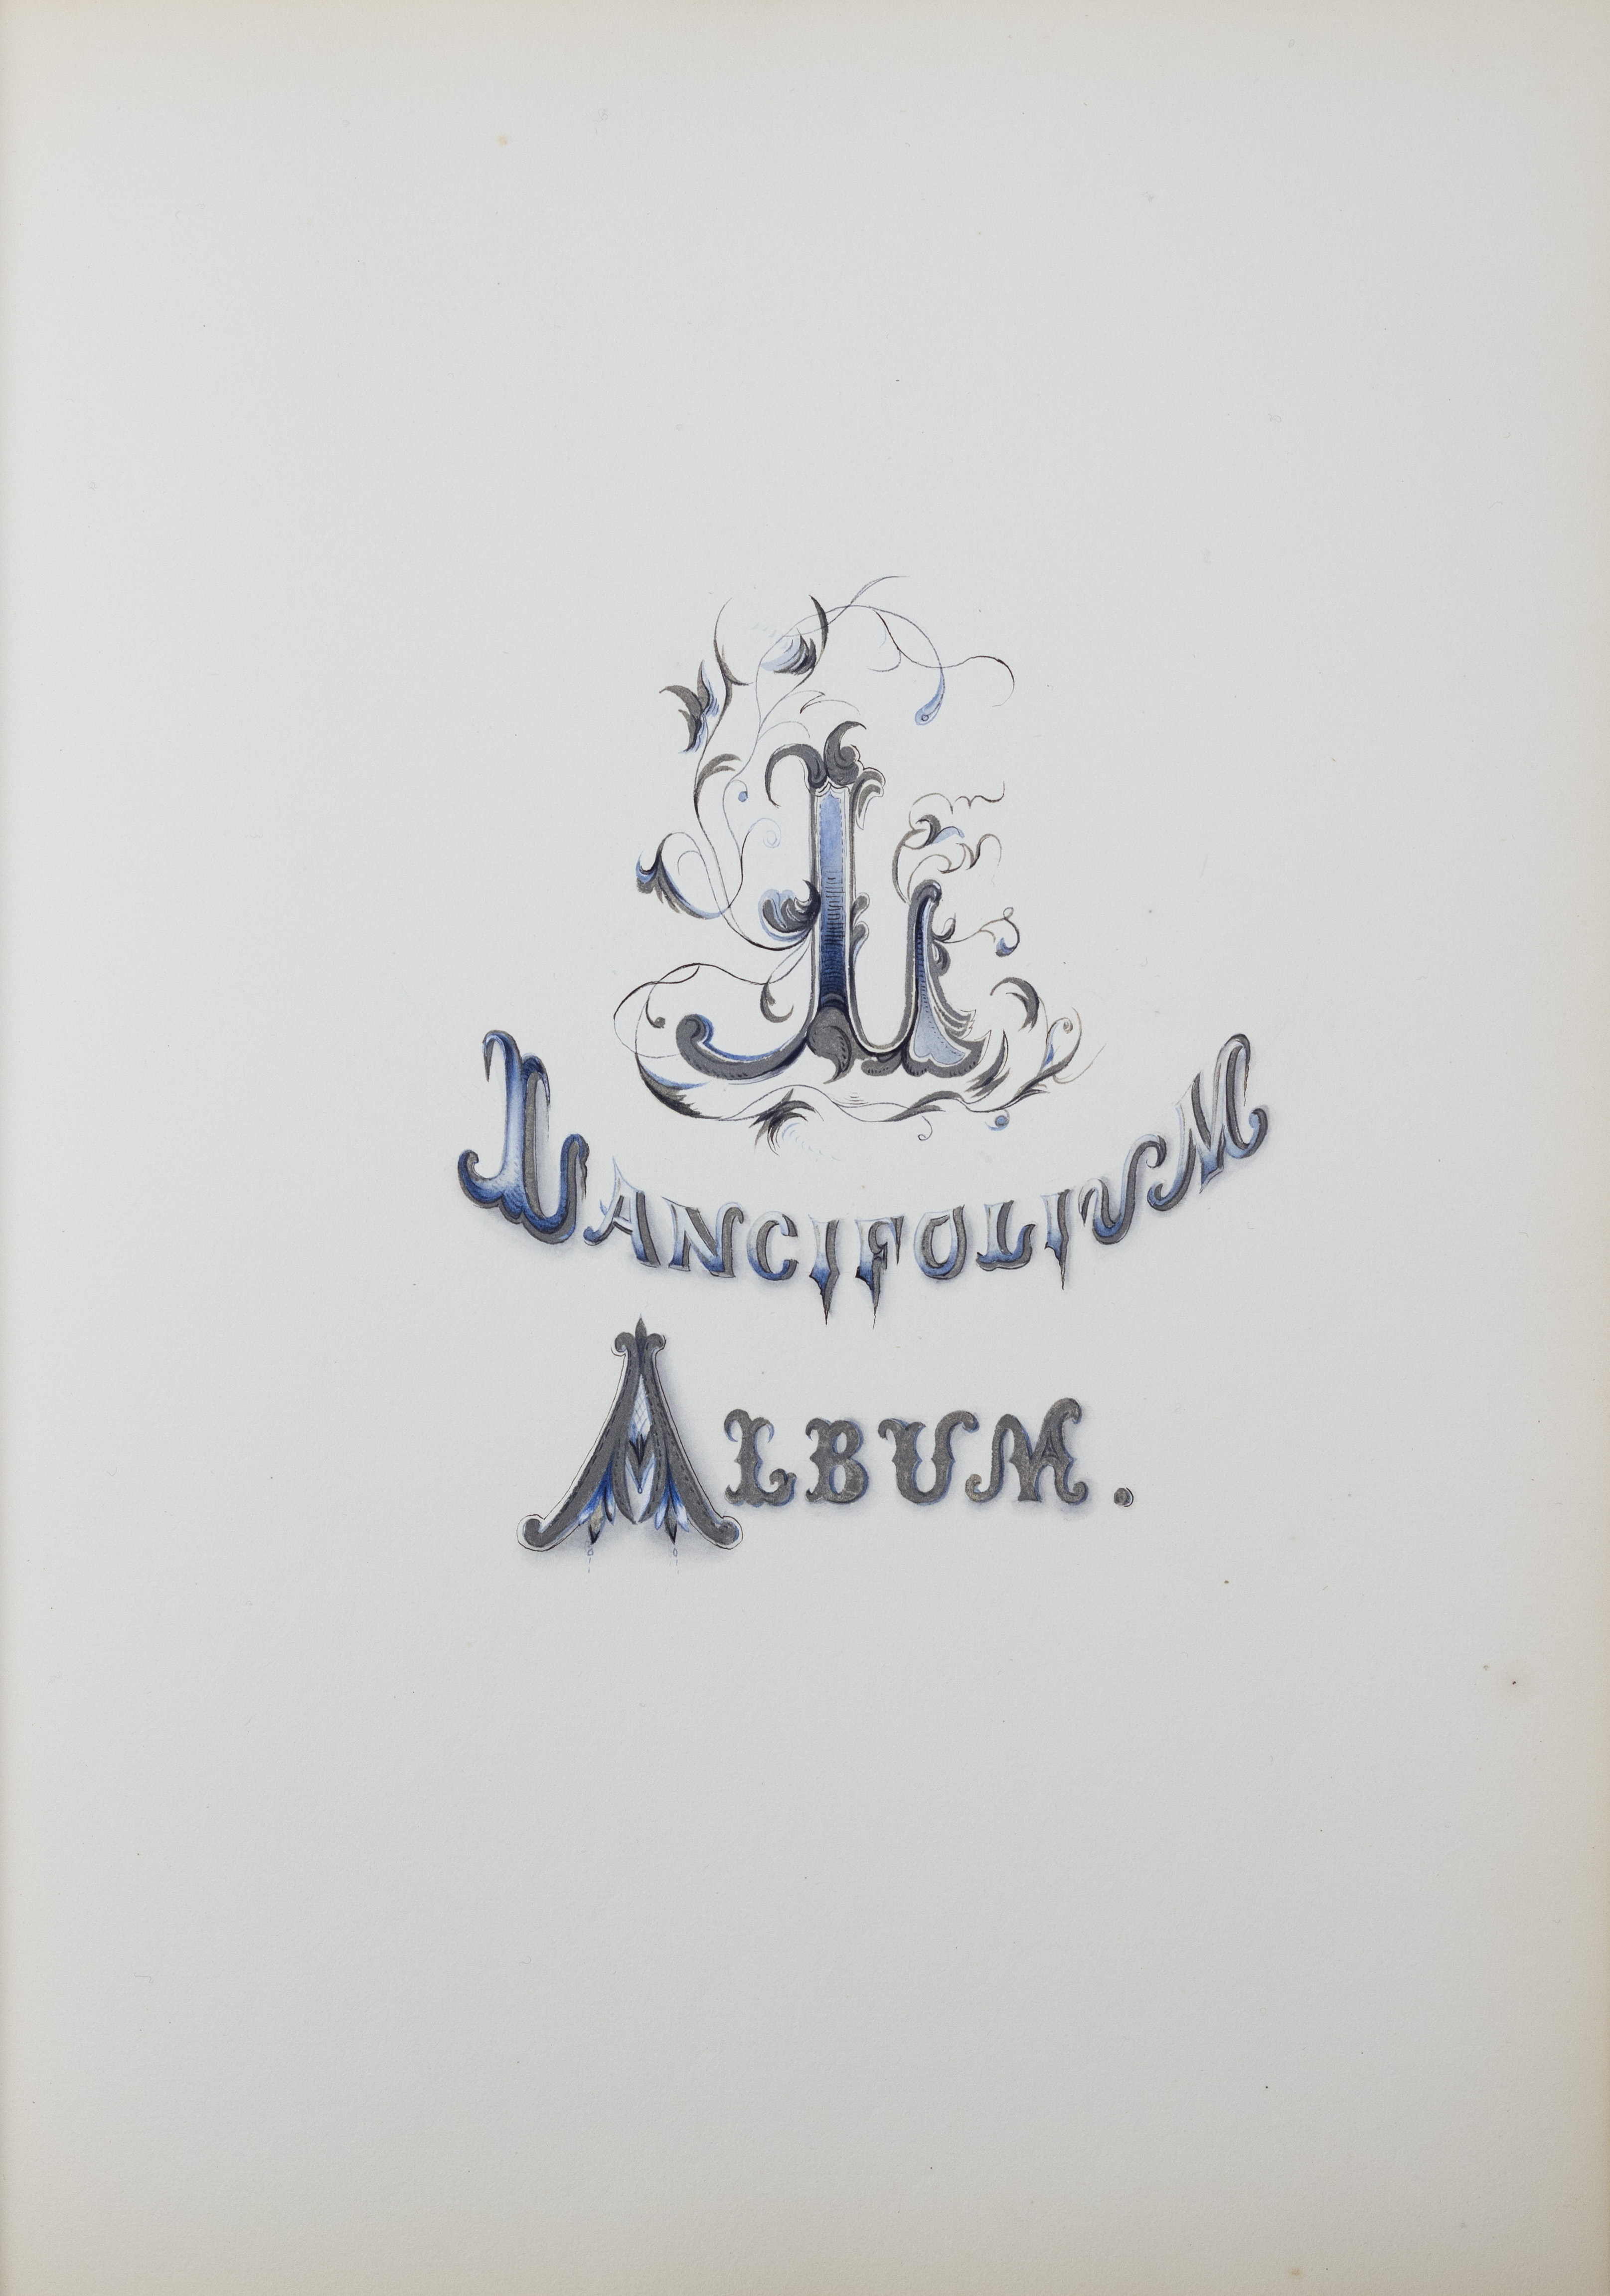 L
LANCIFOLIUM
ALBUM.